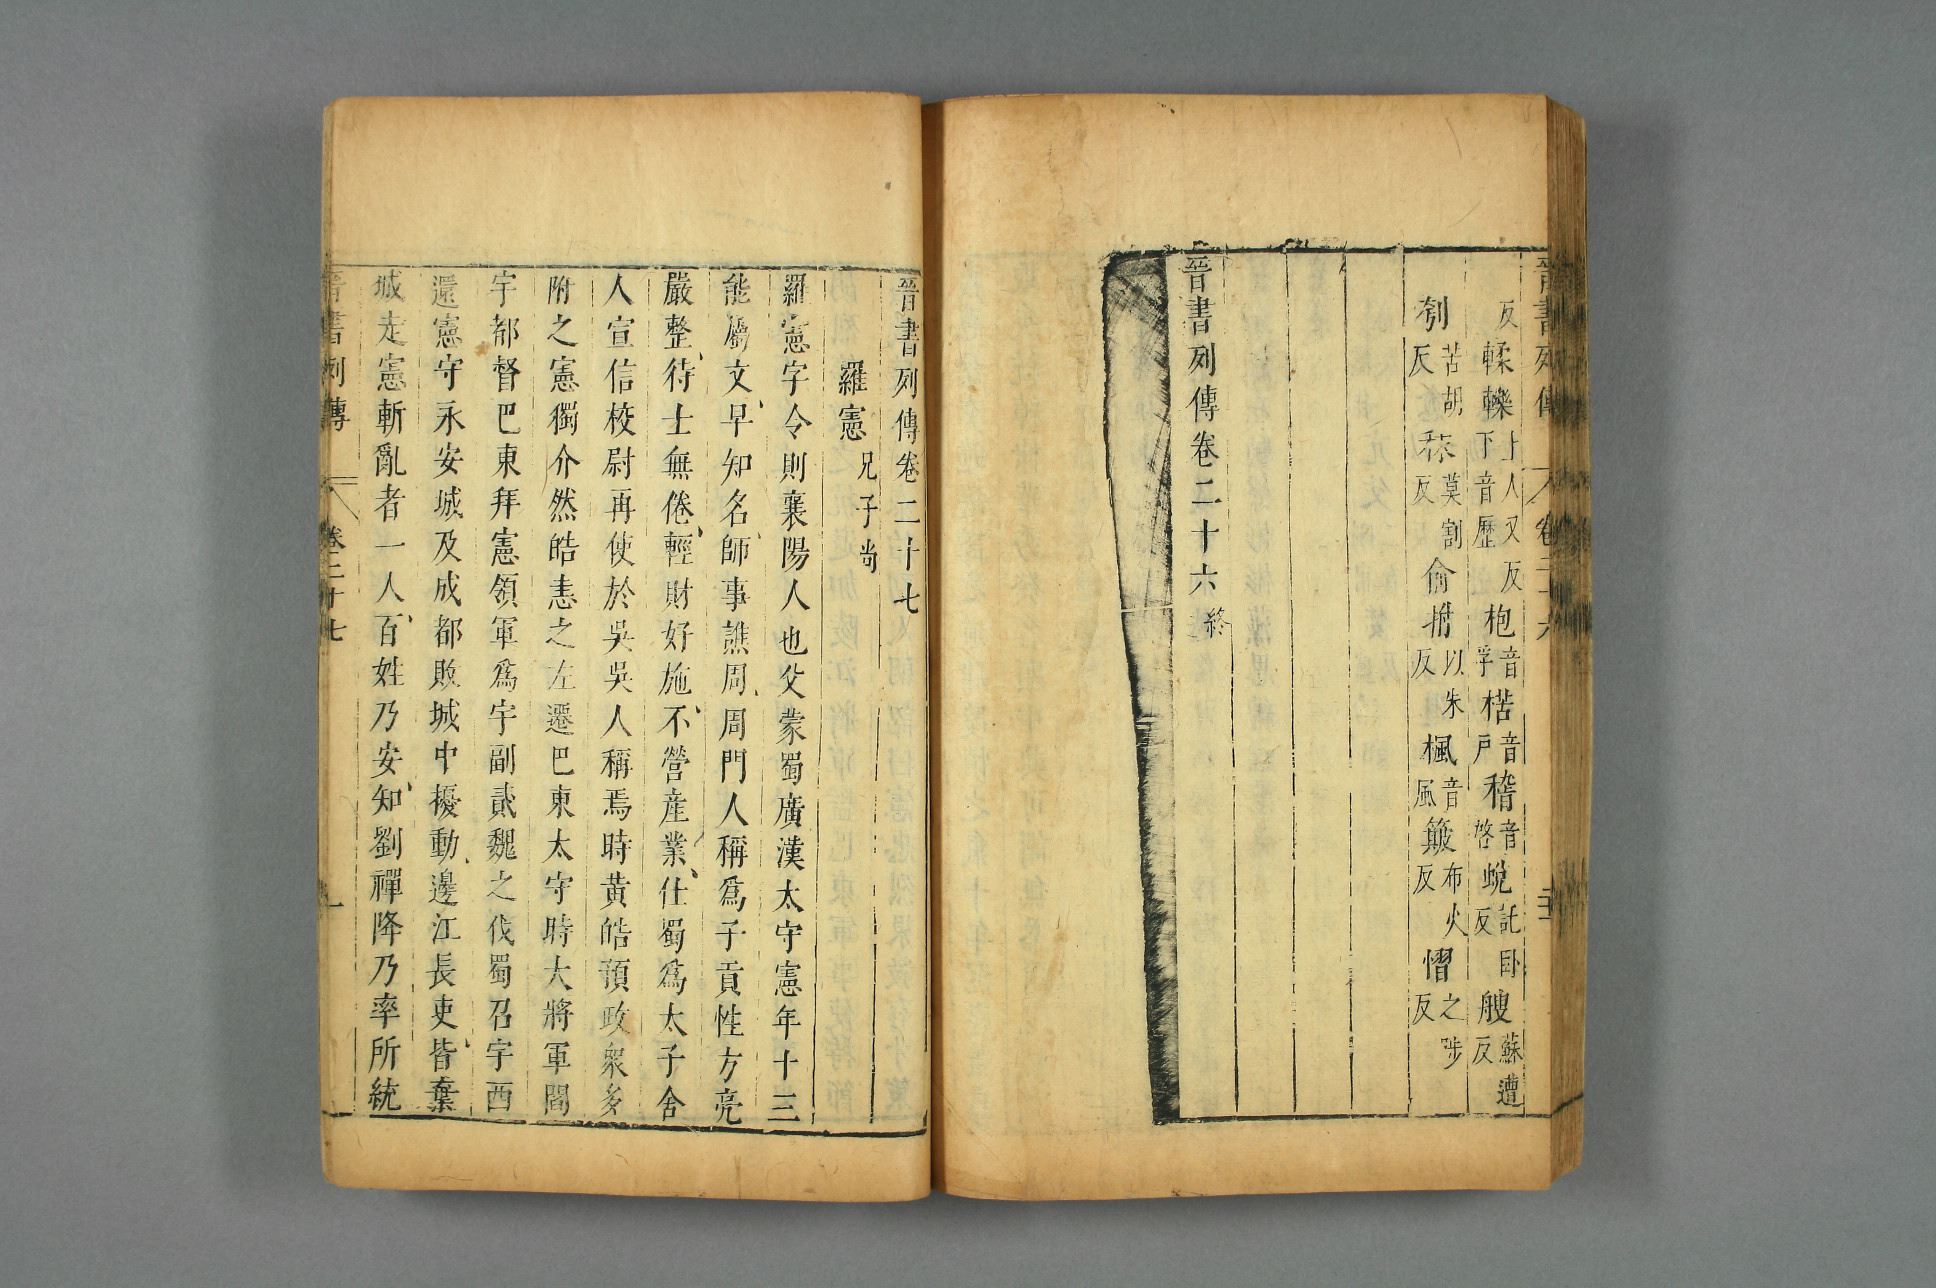 晉書列傳 卷二十六
反輮轢上人又反下音歷枹音孚楛音戶稽音啓蛻託卧反艘蘇遭反
刳苦胡反秣莫割反偷揄以朱反楓音風簸布火反慴之哆反
晉書列傳卷二十六終
晉書列傳卷二十七
羅憲 兄子尚
羅憲字令則襄陽人也父蒙蜀廣漢太守憲年十三
能屬文早知名師事譙周周門人稱爲子貢性方亮
嚴整待士無倦輕財好施不營産業仕蜀爲太子舍
人宣信校尉再使於吳吳人稱焉時黃皓預政衆多
附之憲獨介然皓恚之左遷巴東太守時大將軍閻
宇都督巴東拜憲領軍爲宇副貳魏之伐蜀召宇西
還憲守永安城及成都敗城中擾動邊江長吏皆棄
城走憲斬亂者一人百姓乃安知劉禪降乃率所統
晉書列傳 卷二十七 一